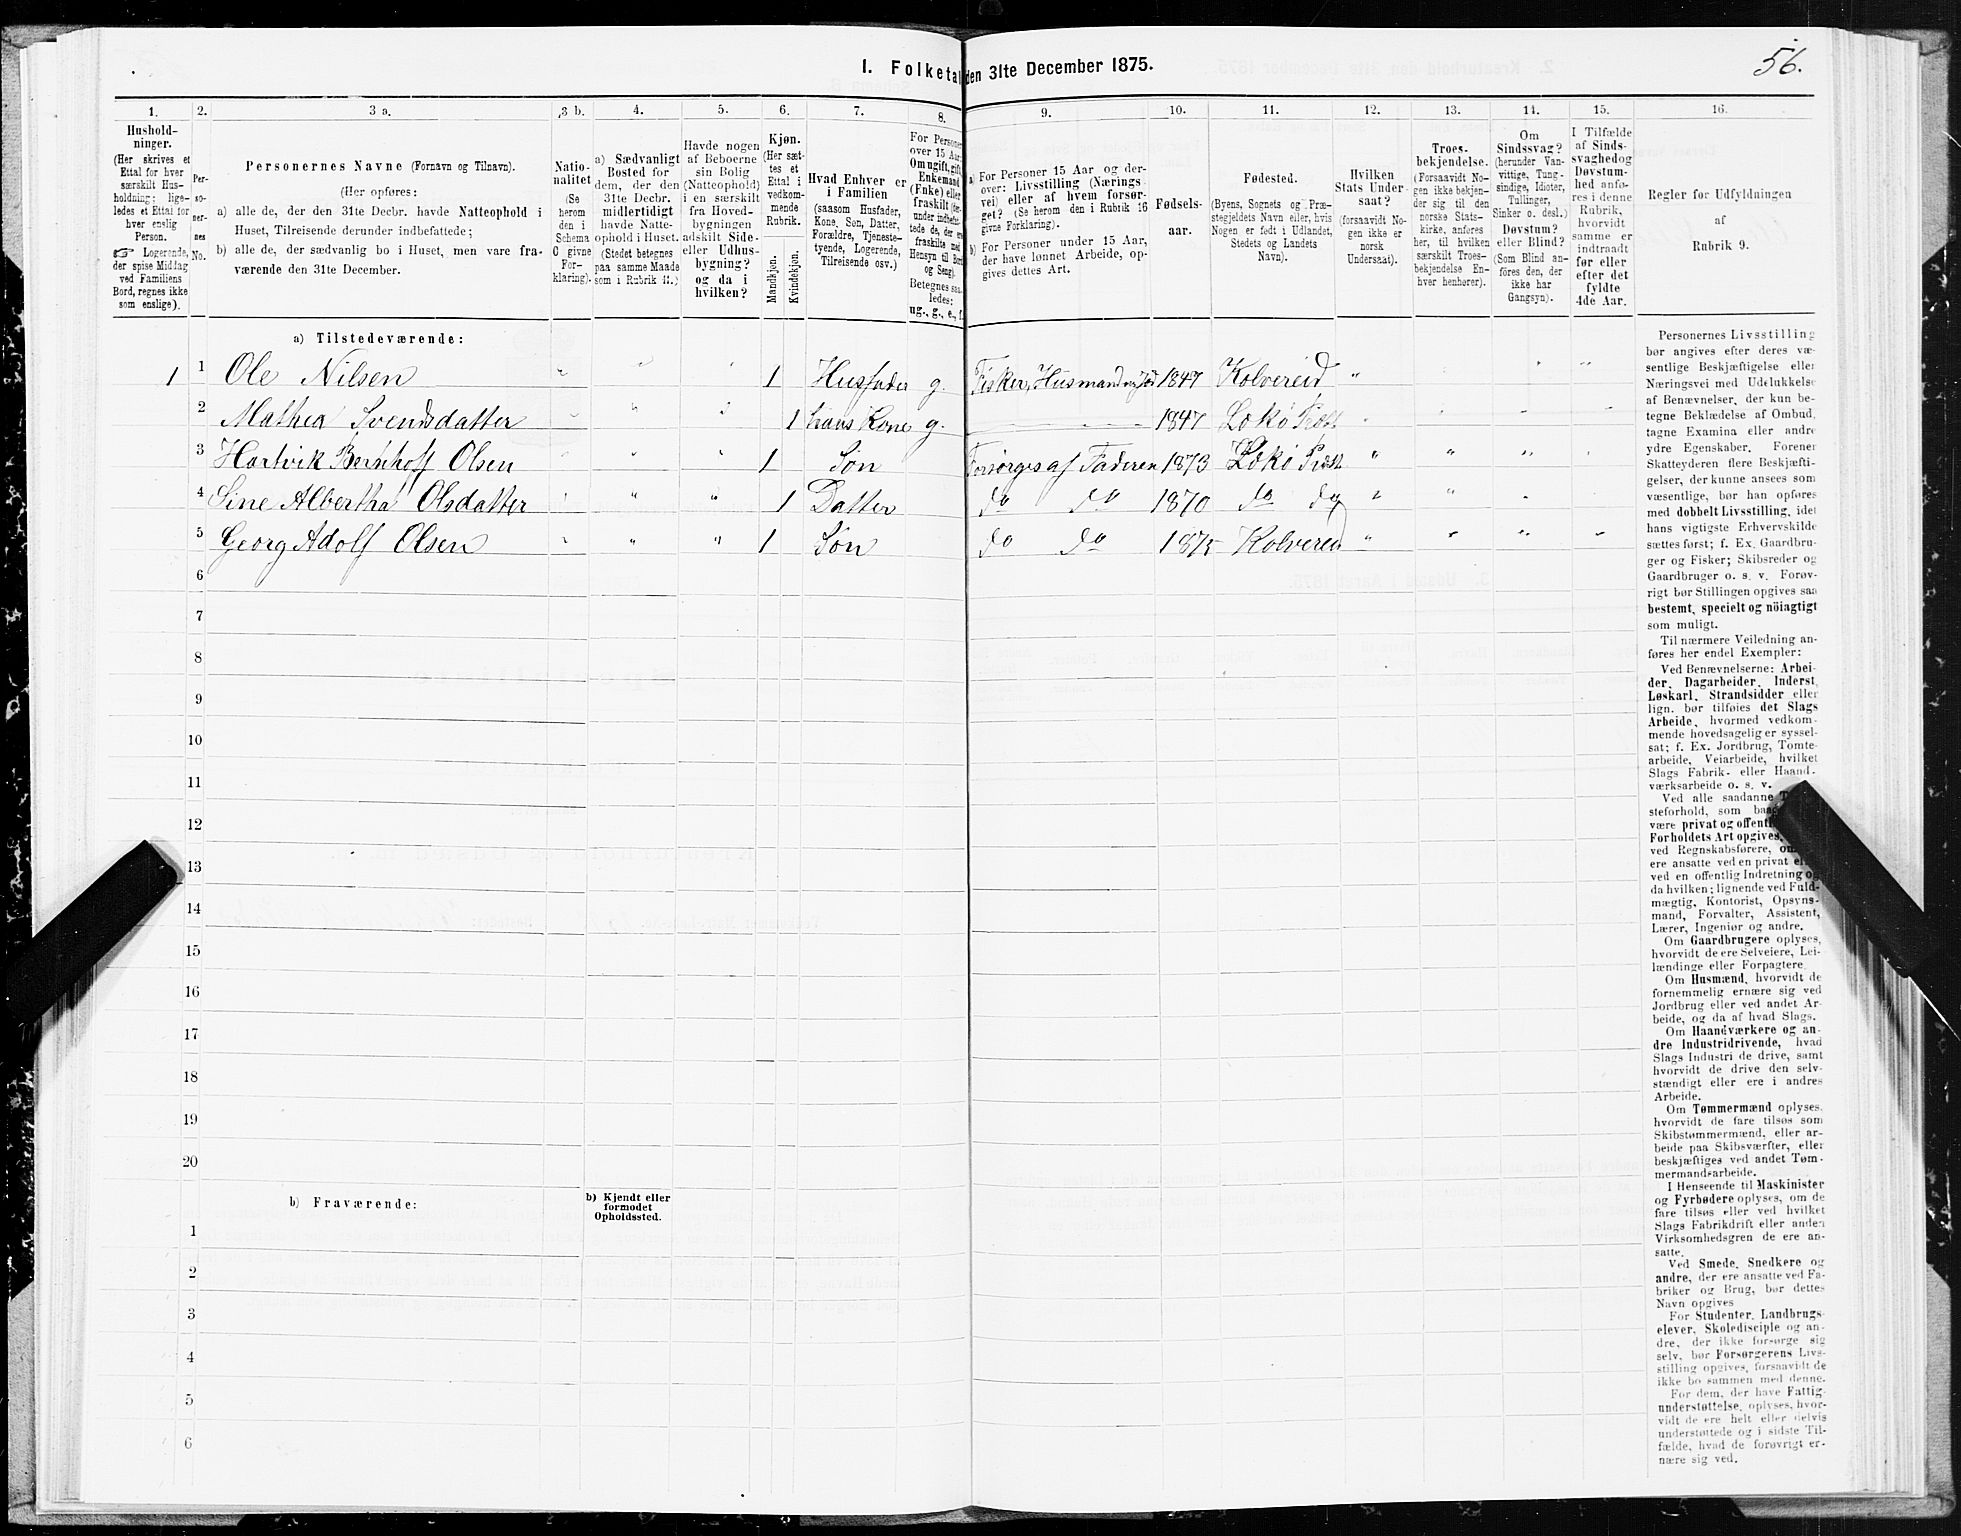 56.
I. Folketal den 31te December 1875.
1. 2. 3 a. 3 b. 4. 5. 6. 7. 8. 9. 10. 11. 12. 13. 14. 15. 16.
Hushold-
ninger.
(Her skrives et
Ettal for hver
særskilt Hus-
holdning; lige-
ledes et Ettal for
hver enslig
Person.
☞ Logerende,
der spise Middag
ved Familiens
Bord, regnes ikke
som enslige).
Per-
so-
ner-
nes
No.
Personernes Navne (Fornavn og Tilnavn).
(Her opføres:
a) alle de, der den 31te Decbr. havde Natteophold i
Huset, Tilreisende derunder indbefattede;
b) alle de, der sædvanlig bo i Huset, men vare fra-
værende den 31te December.
Natio-
nalitet
(Se
herom
den i
Schema
C givne
For-
klaring).
a) Sædvanligt
Bosted for
dem, der den
31te Decbr.
midlertidigt
havde Natte-
ophold i Huset.
(Stedet betegnes
paa samme Maade
som i Rubrik 11.)
Havde nogen
af Beboerne
sin Bolig
(Natteophold)
i en særskilt
fra Hoved-
bygningen
adskilt Side-
eller Udhus-
bygning?
og da i
hvilken?
Kjøn.
(Her sæt-
tes et
Ettal i
vedkom-
mende
Rubrik.
Mandkjøn.
Kvindekjøn.
Hvad Enhver er
i Familien
(saasom Husfader,
Kone, Søn, Datter,
Forældre, Tjeneste-
tyende, Logerende,
Tilreisende osv.)
For Personer
over 15 Aar:
Om ugift, gift,
Enkemand
(Enke) eller
fraskilt
Betegnes saa-
ledes:
ug., g., e., f.
a) For Personer 15 Aar og der-
over: Livsstilling (Nærings-
vei) eller af hvem forsør-
get? (Se herom den i Rubrik 16
givne Forklaring).
b) For Personer under 15 Aar,
der have lønnet Arbeide, op-
gives dettes Art.
Fødsels-
aar.
Fødested.
(Byens, Sognets og Præ-
stegjeldets Navn eller, hvis
Nogen er født i Udlandet,
Stedets og Landets
Navn).
Hvilken
Stats Under-
saat?
(forsaavidt No-
gen ikke er
norsk
Undersaat).
Troes-
bekjendelse.
(Forsaavidt No-
gen ikke bekjen-
der sig til den
norske Stats-
kirke, anføres
her, til hvilken
særskilt Troes-
bekjendelse En-
hver henhører).
Om
Sindssvag?
(herunder Van-
vittige, Tung-
sindige, Idioter,
Tullinger,
Sinker o. desl.)
Døvstum?
eller Blind?
(Som Blind an-
føres den, der
ikke har
Gangsyn).
I Tilfælde
af Sinds-
svaghed og
Døvstum-
hed anfø-
res i denne
Rubrik,
hvorvidt
samme er
indtraadt
før eller
efter det
fyldte
4de Aar.
Regler for Udfyldningen
af
Rubrik 9.
a) Tilstedeværende:
1 1 Ole Nilsen " " " 1 Husfader g. Fisker, Husmand 1847 Kolvereid "
2 Mathea Svendsdatter 1 hans Kone g. 1847 Lekø Præst
3 Hartvik Bernhoff Olsen 1 Søn Forsørges af Faderen 1873 Lekø Præst " " "
4 Sine Albertha Olsdatter " " 1 Datter do do 1870 do do " "
5 Georg Adolf Olsen " " 1 Søn do do 1875 Kolvereid " " " "
6
7
8
9
10
11
12
13
14
15
16
17
18
19
20
b) Fraværende:
b) Kjendt eller
formodet
Opholdssted.
1
2
3
4
5
6
Personernes Livsstilling
bør angives efter deres væ-
sentlige Beskjæftigelse eller
Næringsvei med Udelukkelse
af Benævnelser, der kun be-
tegne Beklædelse af Ombud,
tagne Examina eller andre
ydre Egenskaber. Forener
Skatteyderen flere Beskjæfti-
gelser, der kunne ansees som
væsentlige, bør han opføres
med dobbelt Livsstilling, idet
hans vigtigste Erhvervskilde
sættes først; f. Ex. Gaardbru-
ger og Fisker; Skibsreder og
Gaardbruger o. s. v. Forøv-
rigt bør Stillingen opgives saa
bestemt, specielt og nöiagtigt
som muligt.
Til nærmere Veiledning an-
føres her endel Exempler:
Ved Benævnelserne: Arbei-
der, Dagarbeider, Inderst,
Løskarl, Strandsidder eller
lign. bør tilføies det Slags
Arbeide, hvormed vedkom-
mende hovedsagelig er syssel-
sat; f. Ex. Jordbrug, Tomte-
arbeide, Veiarbeide, hvilket
Slags Fabrik- eller Haand-
værksarbeide o. s. v.
Ved alle saadanne
steforhold, som
være privat og
Forholdets Art opgives,
ved Regnskabsførere,
ere ansatte ved en privat
ved en offentlig Indretning og
da hvilken; lignende ved Fuld-
mægtig, Kontorist, Opsyns-
mand, Forvalter, Assistent,
Lærer, Ingeniør og andre.
Om Gaardbrugere oplyses,
hvorvidt de ere Selveiere, Lei-
lændinge eller Forpagtere.
Om Husmænd, hvorvidt de
fornemmelig ernære sig ved
Jordbrug eller ved andet Ar-
beide, og da af hvad Slags.
Om Haandværkere og an-
dre Industridrivende, hvad
Slags Industri de drive, samt
hvorvidt de drive den selv-
stændigt eller ere i andres
Arbeide.
Om Tømmermænd oplyses,
hvorvidt de fare tilsøs som
Skibstømmermænd, eller ar-
beide paa Skibsværfter, eller
beskjæftiges ved andet Tøm-
mermandsarbeide.
I Henseende til Maskinister
og Fyrbødere oplyses, om de
fare tilsøs eller ved hvilket
Slags Fabrikdrift eller anden
Virksomhedsgren de ere an-
satte.
Ved Smede, Snedkere og
andre, der ere ansatte ved Fa-
briker og Brug, bør dettes
Navn opgives
For Studenter, Landbrugs-
elever, Skoledisciple og an-
dre, der ikke forsørge sig
selv, bør Forsørgerens Livs-
stilling opgives, forsaavidt de
ikke bo sammen med denne.
For dem, der have Fattig-
understøttelse, oplyses, hvor-
vidt de ere helt eller delvis
understøttede og i sidste Til-
fælde, hvad de forøvrigt er-
nære sig ved.